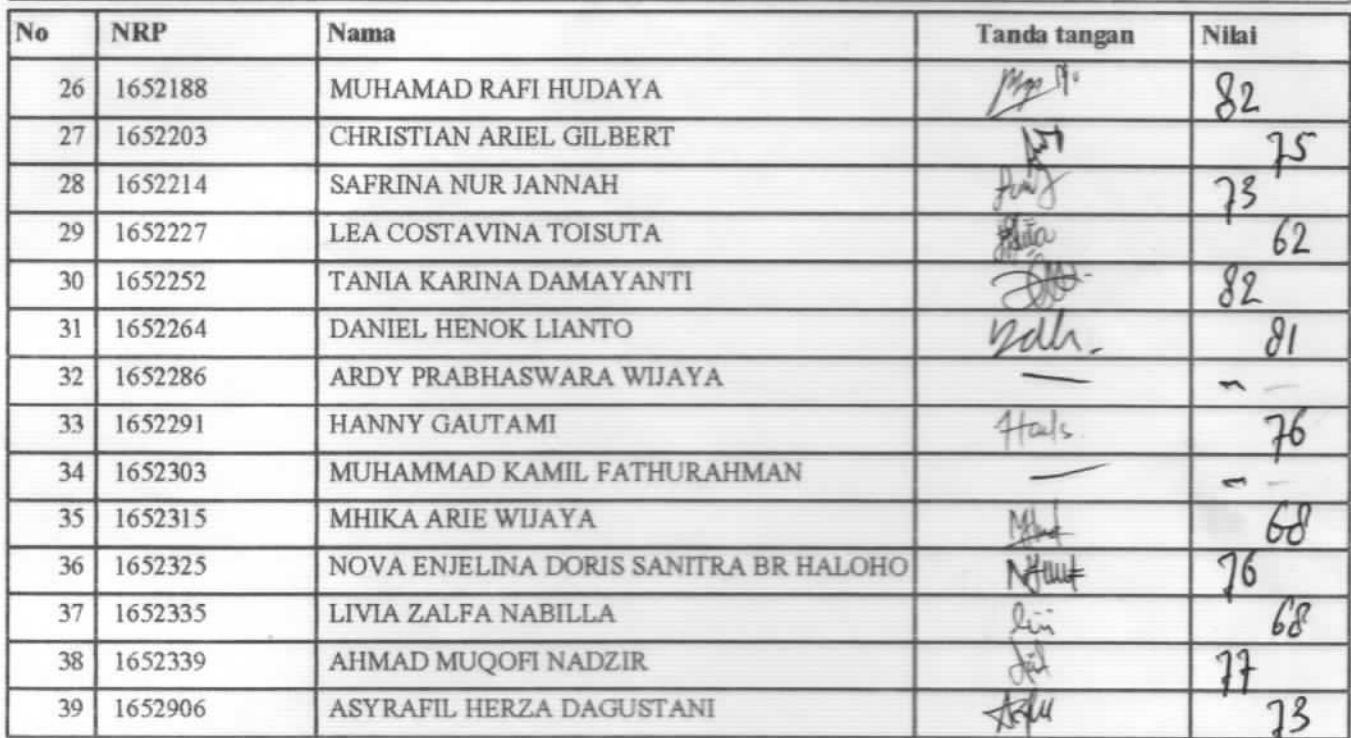 No NRP Nama Tanda tangan Nilai
26 1652188 MUHAMAD RAFI HUDAYA 82
27 1652203 CHRISTIAN ARIEL GILBERT 75
28 1652214 SAFRINA NUR JANNAH 73
29 1652227 LEA COSTAVINA TOISUTA 62
30 1652252 TANIA KARINA DAMAYANTI 82
31 1652264 DANIEL HENOK LIANTO 81
32 1652286 ARDY PRABHASWARA WIJAYA — - -
33 1652291 HANNY GAUTAMI 76
34 1652303 MUHAMMAD KAMIL FATHURAHMAN — - -
35 1652315 MHIKA ARIE WIJAYA 68
36 1652325 NOVA ENJELINA DORIS SANITRA BR HALOHO 76
37 1652335 LIVIA ZALFA NABILLA 68
38 1652339 AHMAD MUQOFI NADZIR 77
39 1652906 ASYRAFIL HERZA DAGUSTANI 73